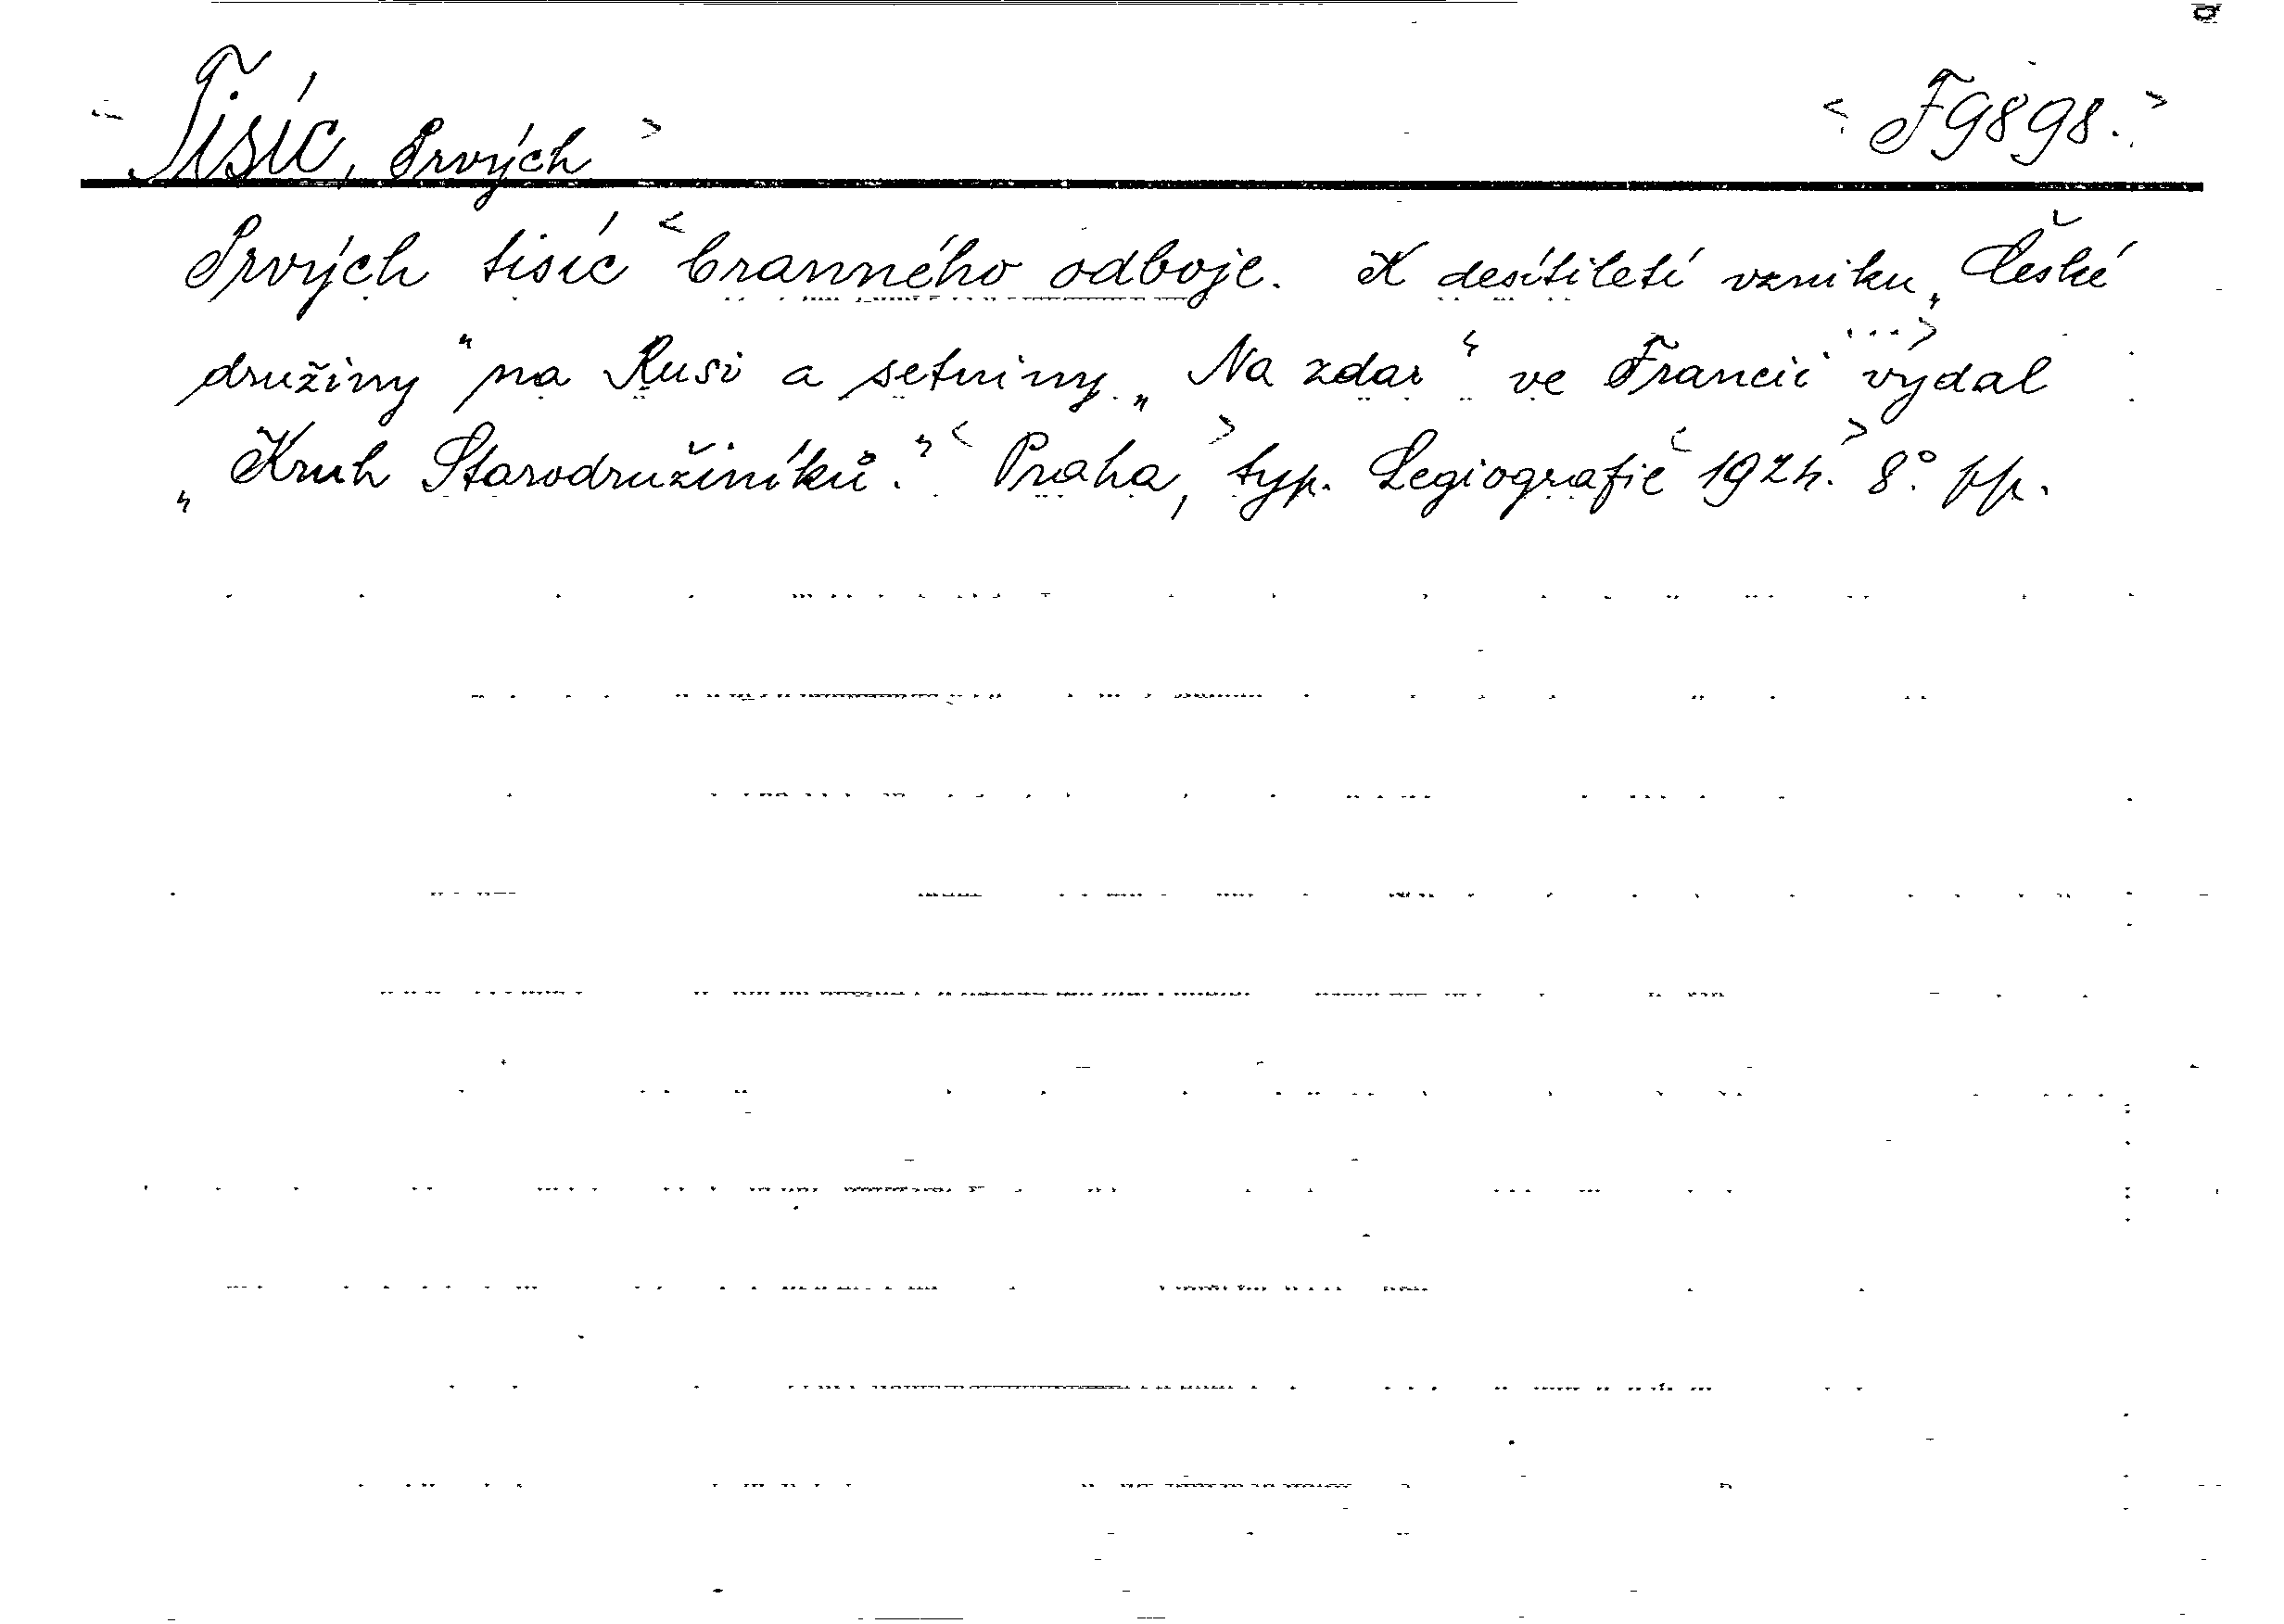 < Tisíc, Prvých > < F 9898. >
Prvých tisíc < branného odboje. K desítiletí vzniku „České
družiny" na Rusi a setniny „Na zdar" ve Francii ...> vydal
„Kruh Starodružiníků." < Praha, > typ. Legiografie < 1924. > 8°. pp.